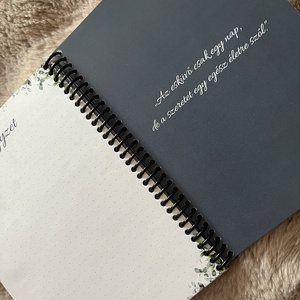 „Az esküvő csak egy nap,
de a szeretet egy egész életre szól."